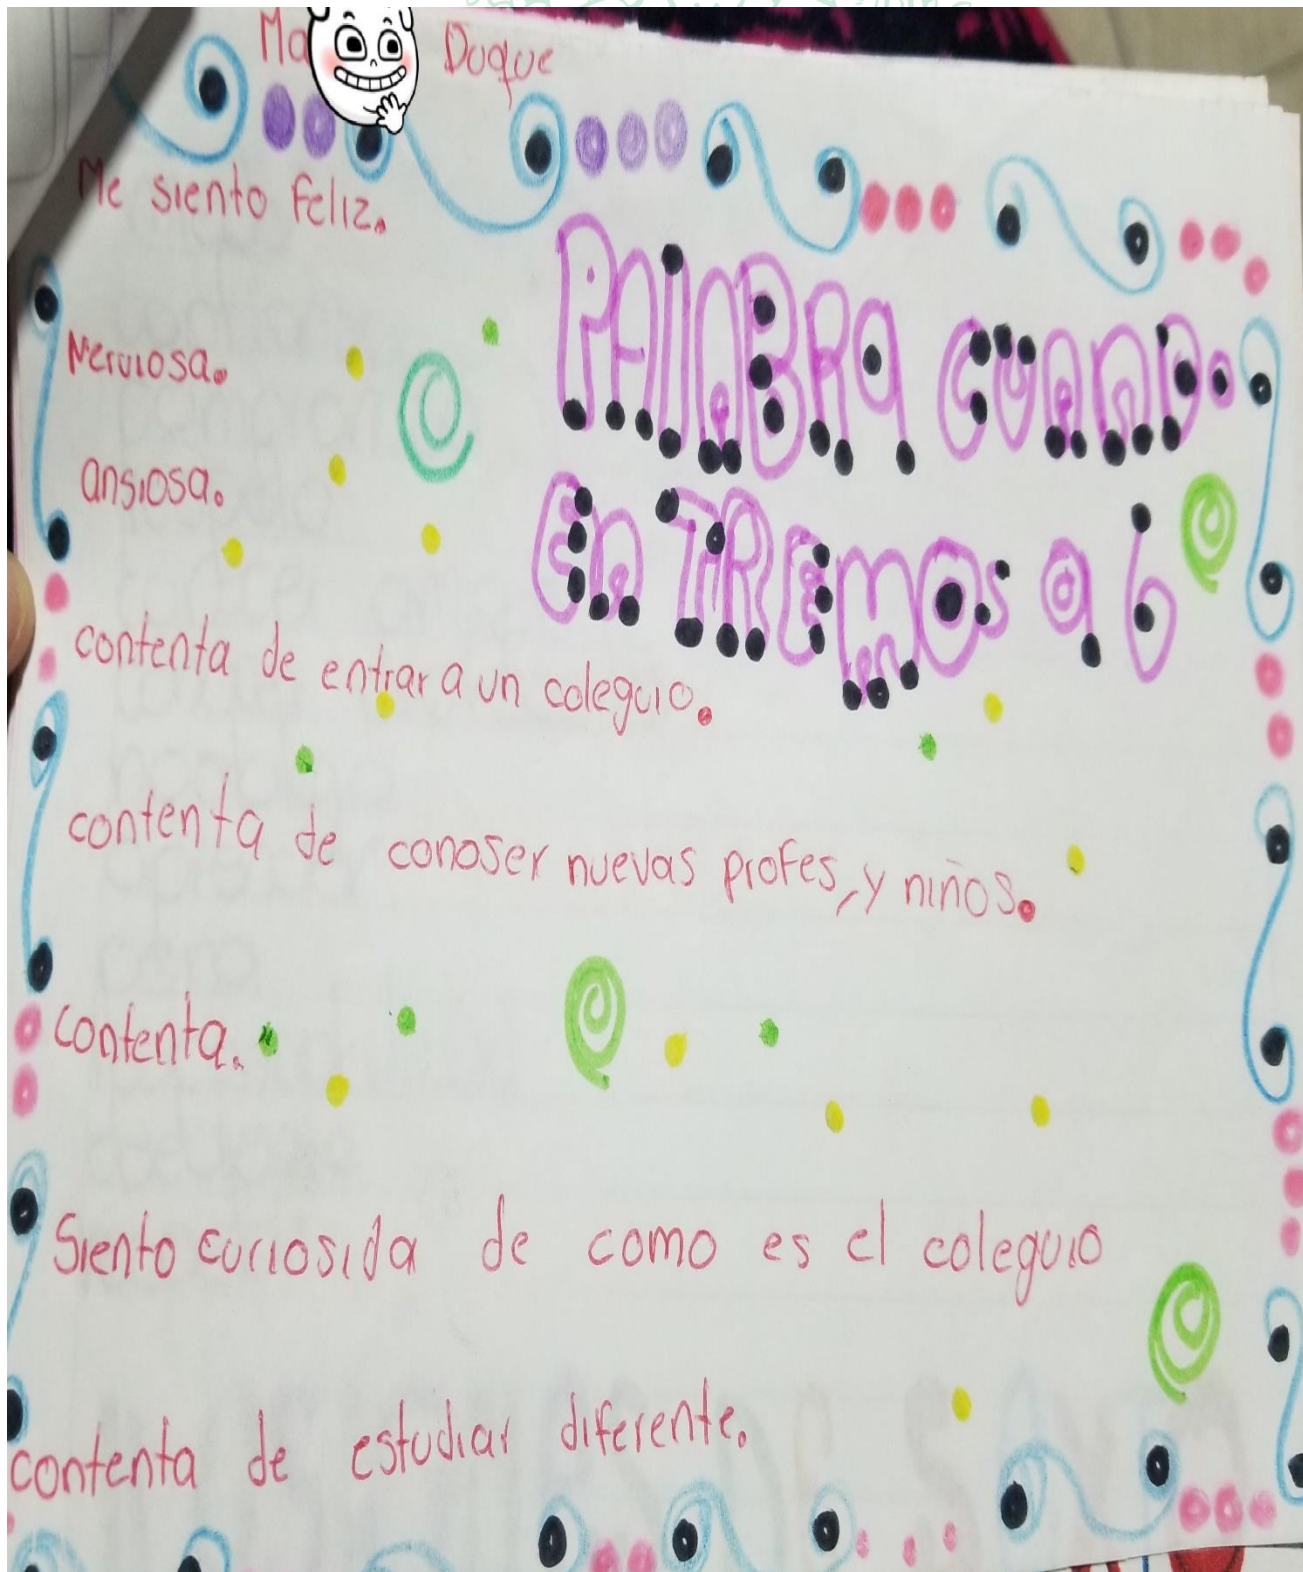 Ma Duque
Me siento feliz.
PALABRA CUANDO
EnTREMOS a 6
Nerviosa.
ansiosa.
contenta de entrar a un coleguio.
contenta de conoser nuevas profes, y niños.
contenta.
Siento curiosida de como es el coleguio
contenta de estudiar diferente.